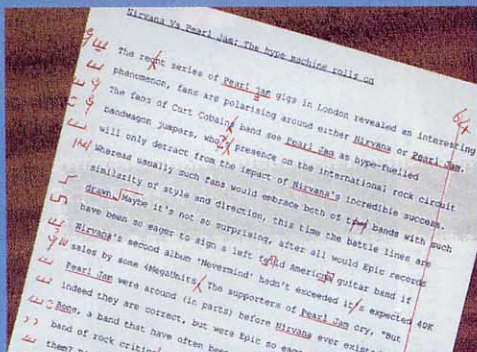 Nirvana Vs Pearl Jam: The hype machine rolls on
The recnt series of Pearl jam gigs in London revealed an interesting
phenomenon, fans are polarising around either Nirvana or Pearl Jam.
The fans of Curt Cobains band see Pearl Jam as hype-fuelled
bandwagon jumpers, who's presence on the international rock circuit
will only detract from the impact of Nirvana's incredible success.
Whereas usually such fans would embrace both of bands with such
similsrity of style and direction, this time the battle lines are
drawn. Maybe it's not so surprising, after all would Epic records
have been so eager to sign a left guitar band if
Nirvana's second album 'Nevermind' hadn't exceeded it's expected 40K
sales by some 4MegaUnits. The supporters of Pearl Jam cry, "But
Pearl Jam were around (in parts) before Nirvana ever
indeed they are correct, but were Epic so
Bone, a band that have often
band of rock
them?